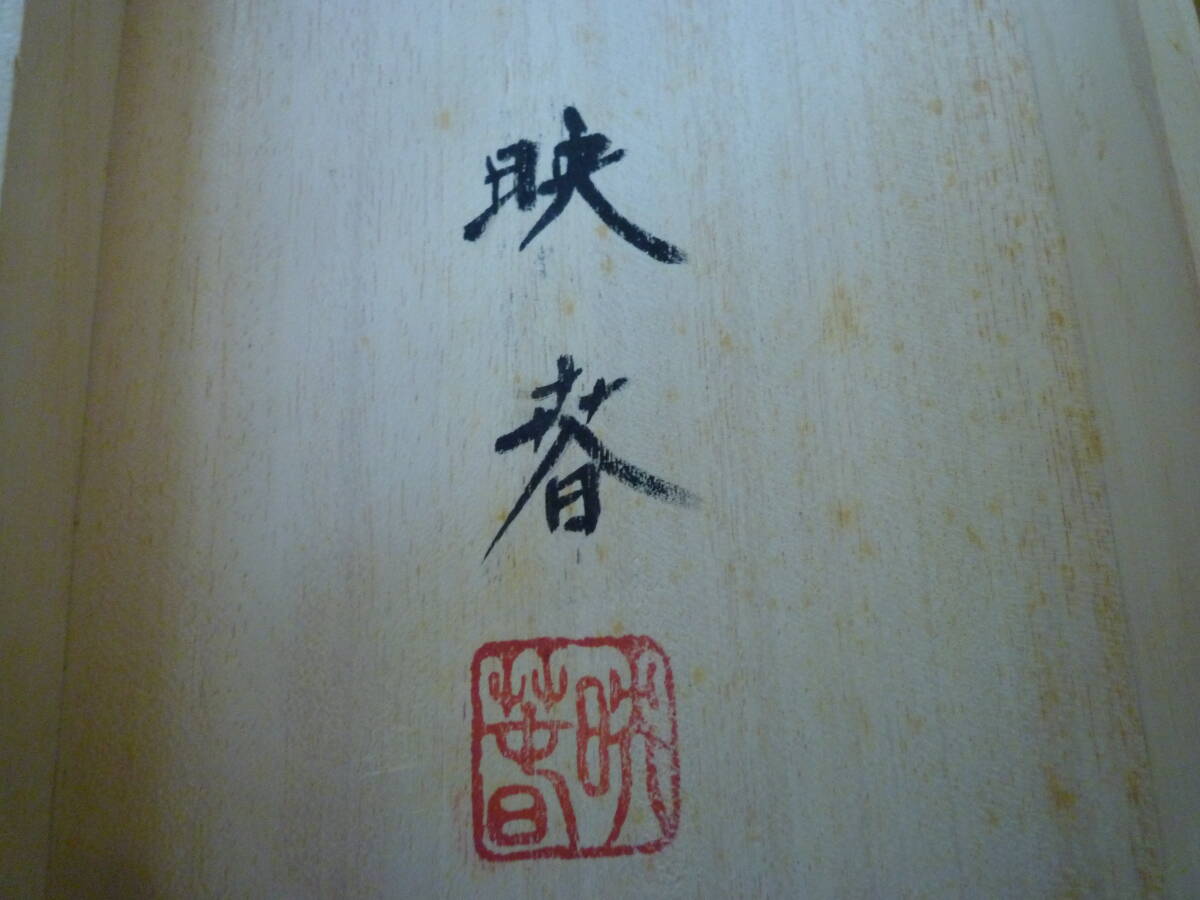 映春
映春